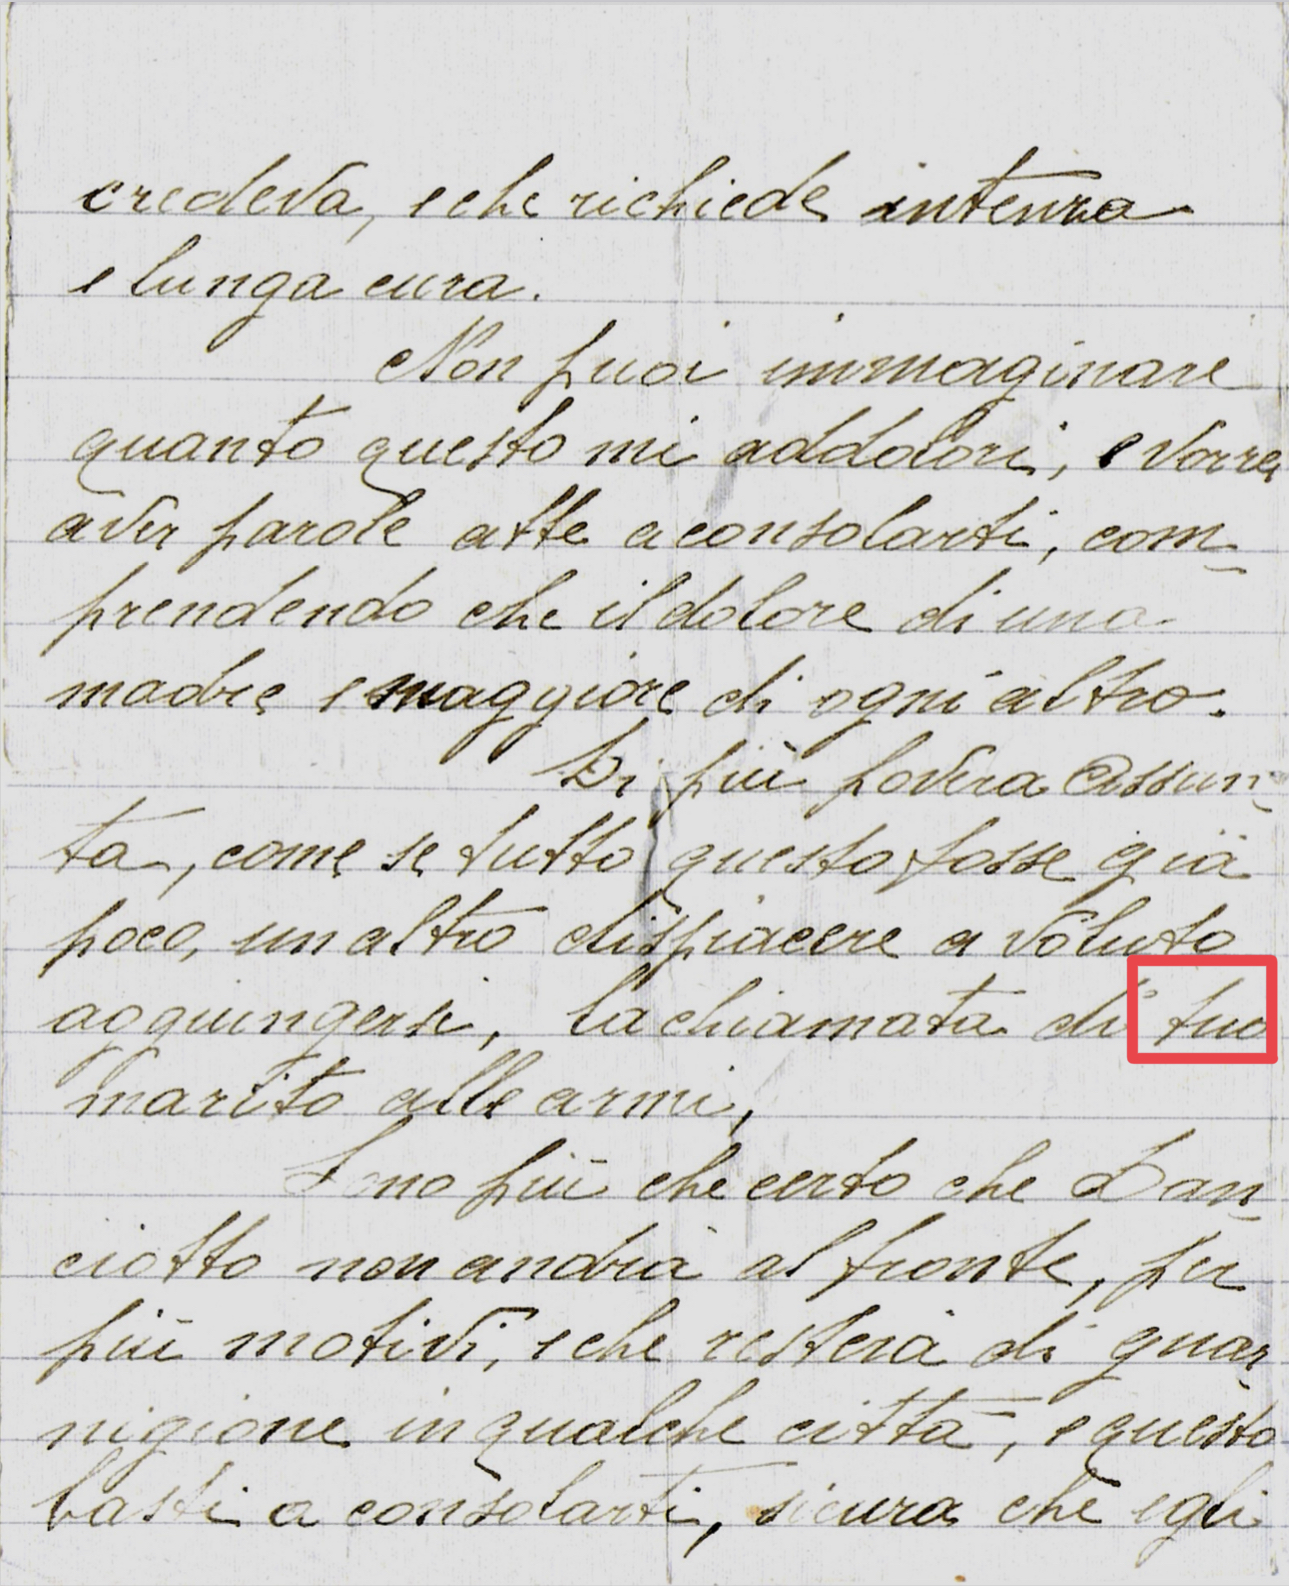 credeva, e che richiede intenza
e lunga cura.
Non puoi immaginare
quanto questo mi addolori, e vorrei
aver parole atte a consolarti, com-
prendendo che il dolore di una
madre e maggiore di ogni altro.
Di più povera Assun-
ta, come se tutto questo fosse già
poco, un altro dispiacere a voluto
aggiungersi, la chiamata di tuo
marito alle armi,
Sono più che certo che Lan-
ciotto non andrà al fronte, per
più motivi, e che resterà di guar-
nigione in qualche città, e questo
basti a consolarti, sicura che egli